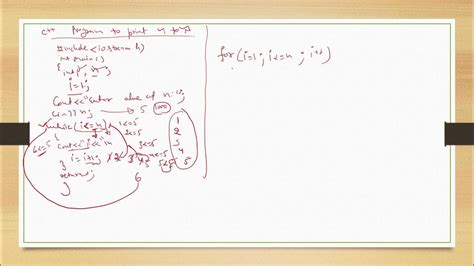 C++ Program to print
#include <iostream.h>
int main()
{ int i,
i=1;
cout<<"Enter value of n:";
cin>>n; → 5
while(i<=n) 1<=5
2<=5
6<=5 { cout<<i<<"\n 3<=5
i=i+1; 4<=5
} 5<=5
return 6
}
1
2
3
4
5
for(i=1; i<=n ; i++)